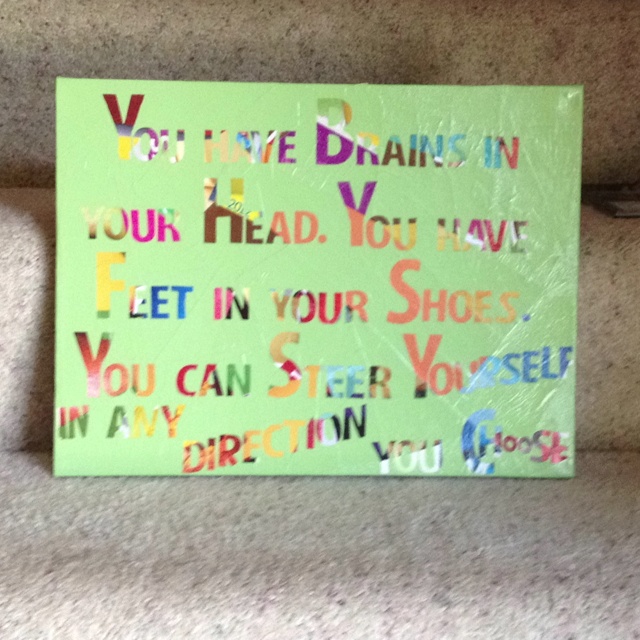 You have Brains in
your Head. You have
Feet in your Shoes.
You can Steer Yourself
in any direction you Choose